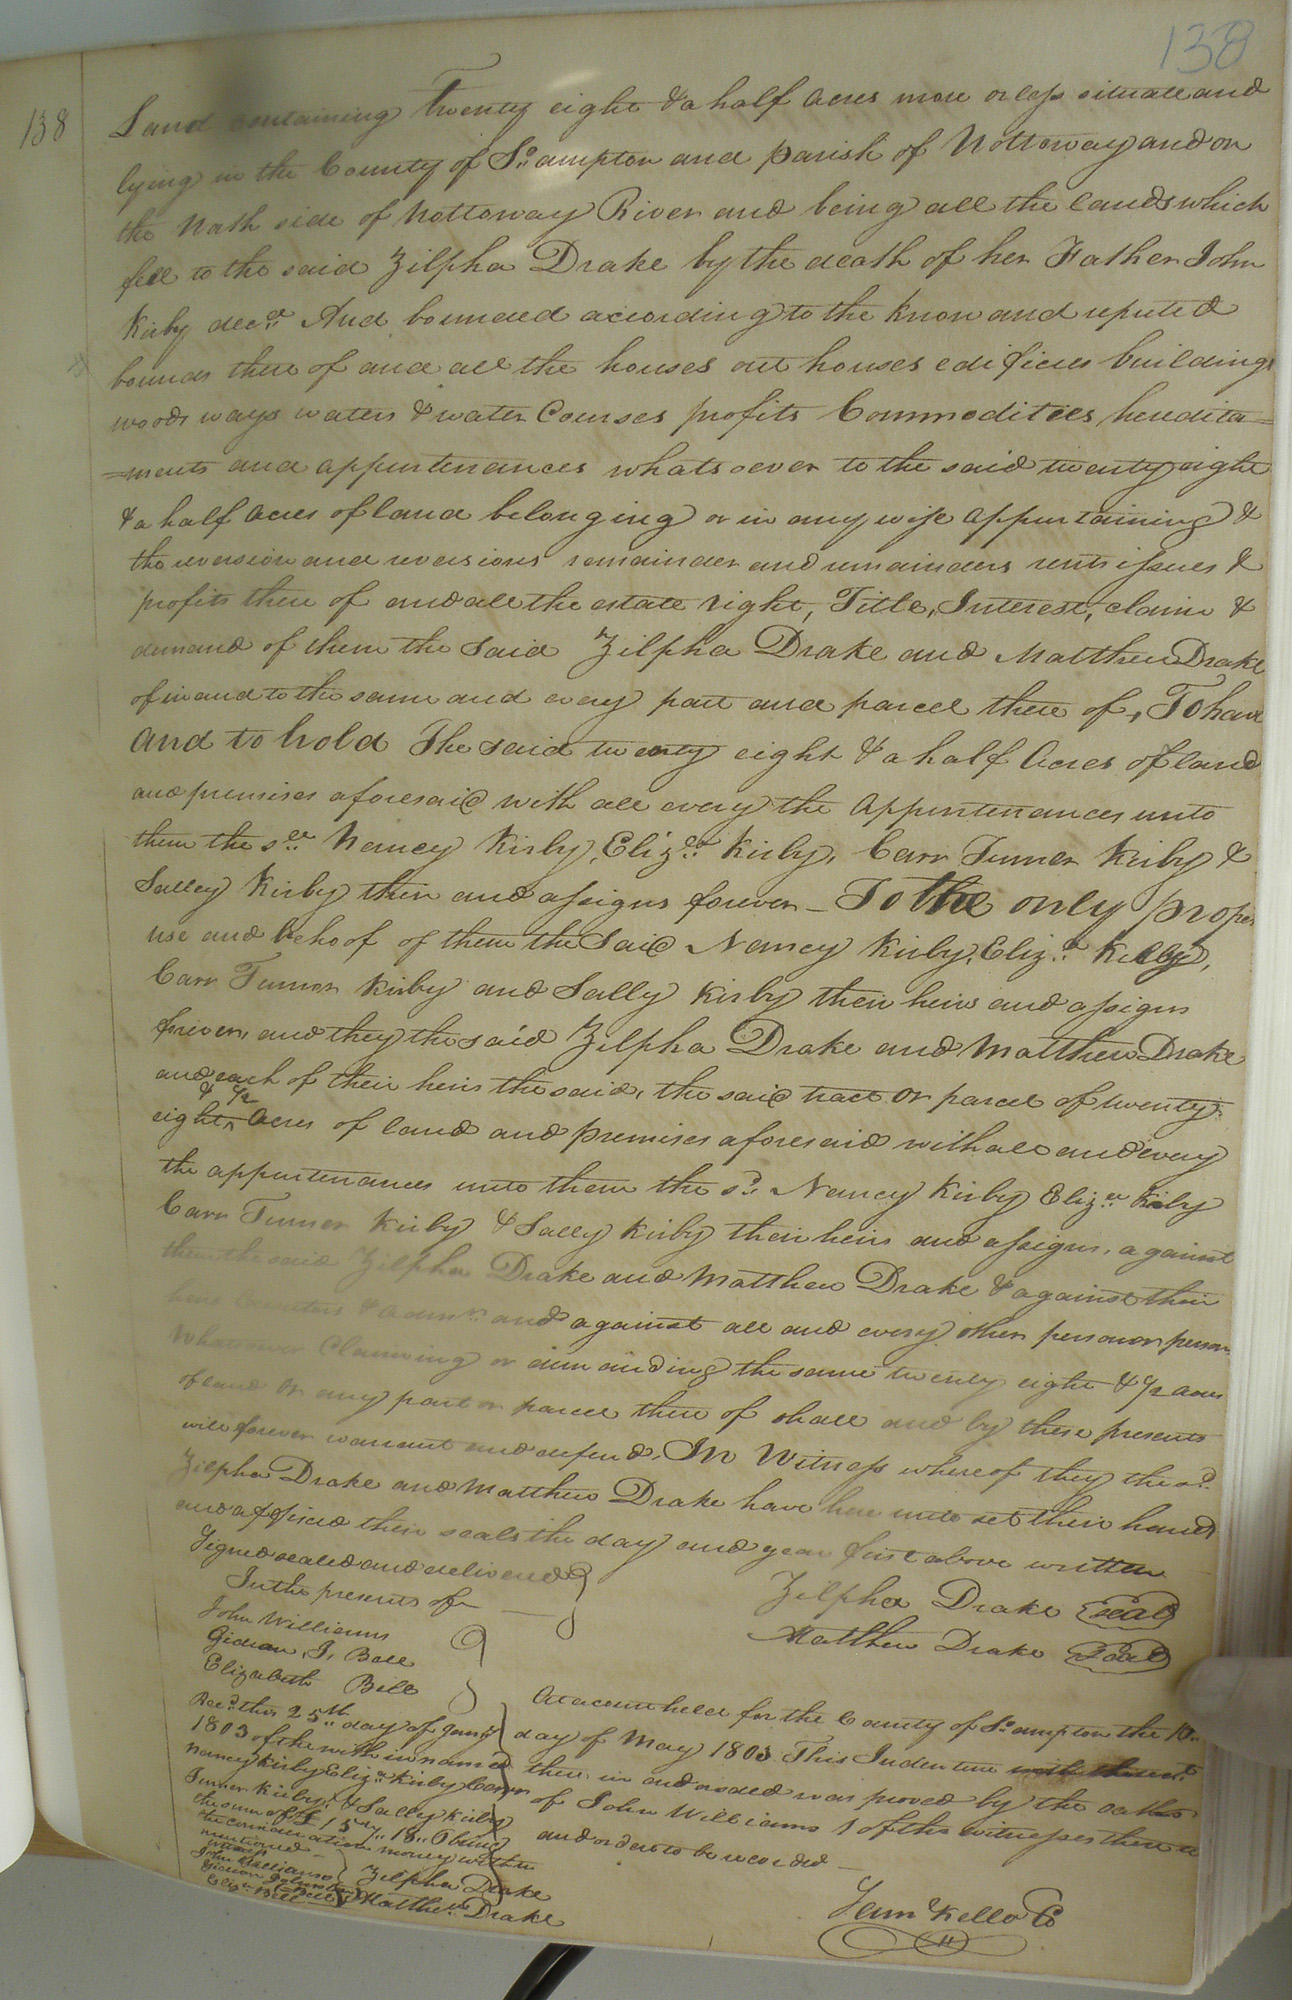 138
138
Land containing Twenty eight & a half acres more or less situate and
lying in the County of So. ampton and parish of Nottoway and on
the Noth side of Nottoway River and being all the lands which
fell to the said Zilpha Drake by the death of her Father John
Kirby decd. And bounded according to the know and reputed
bounds there of and all the houses out houses edificies buildings
woods ways waters & water Courses profits Commodities heredita=
=ments and appurtenances whatsoever to the said twenty eight
& a half acres of land belonging or in any wise appurtaining &
the reversion and reversions remainder and remainders rents issues &
profits there of and all the estate right, Title, Interest, claim &
demand of them the said Zilpha Drake and Matthew Drake
of in and to the same and every part and parcel there of, To have
and to hold The said twenty eight & a half acres of land
and premises aforesaid with all every the appurtenances unto
them the sd. Nancy Kirby, Elizath. Kirby, Carr Turner Kirby &
Salley Kirby their and assigns forever - To the only proper
use and behoof of them the said Nancy Kirby, Eliza. Kirby,
Carr Turner Kirby and Sally Kirby their heirs and assigns
forever, and they the said Zilpha Drake and Matthew Drake
and each of their heirs the said, the said tract or parcel of twenty
& 1/2
eight acres of land and premises aforesaid with all and every
the appurtenances unto them the sd. Nancy Kirby Eliza. Kirby
Carr Turner Kirby & Sally Kirby their heirs and assigns, against
them the said Zilpha Drake and Matthew Drake & against their
heirs Executors & admrs. and against all and every other person or person
whatsoever Claimving or demanding the same twenty eight & 1/2 acres
of land or any part or parcel there of shall and by these presents
will forever warrant and defend. In Witness whereof they the sd.
Zilpha Drake and Matthew Drake have here unto set their hands
and affixed their seals the day and year first above written
Signed sealed and delivered
In the presents of
Zilpha Drake Seal
Matthew Drake Seal
John Williams
Gideon J. Bell
Elizabeth Bell
Recd. this 25th day of Jany
1803 of the with in named
Nancy Kirby Eliza. Kirby Carr
Turner Kirby & Sally Kirby
the sum of £ 15 .. 18 .. 0 being
the consideration money within
mentioned
Witness
John Williams
Gideon Johnston Bell
Eliza. Bell
Zilpha Drake
Matthew Drake
At a court held for the County of So. ampton the
day of May 1803 This Indenture
there in endorsed was proved by the oaths
of John Williams 1 of the witnesses there to
and ordered to be recorded -
Saml Kello C